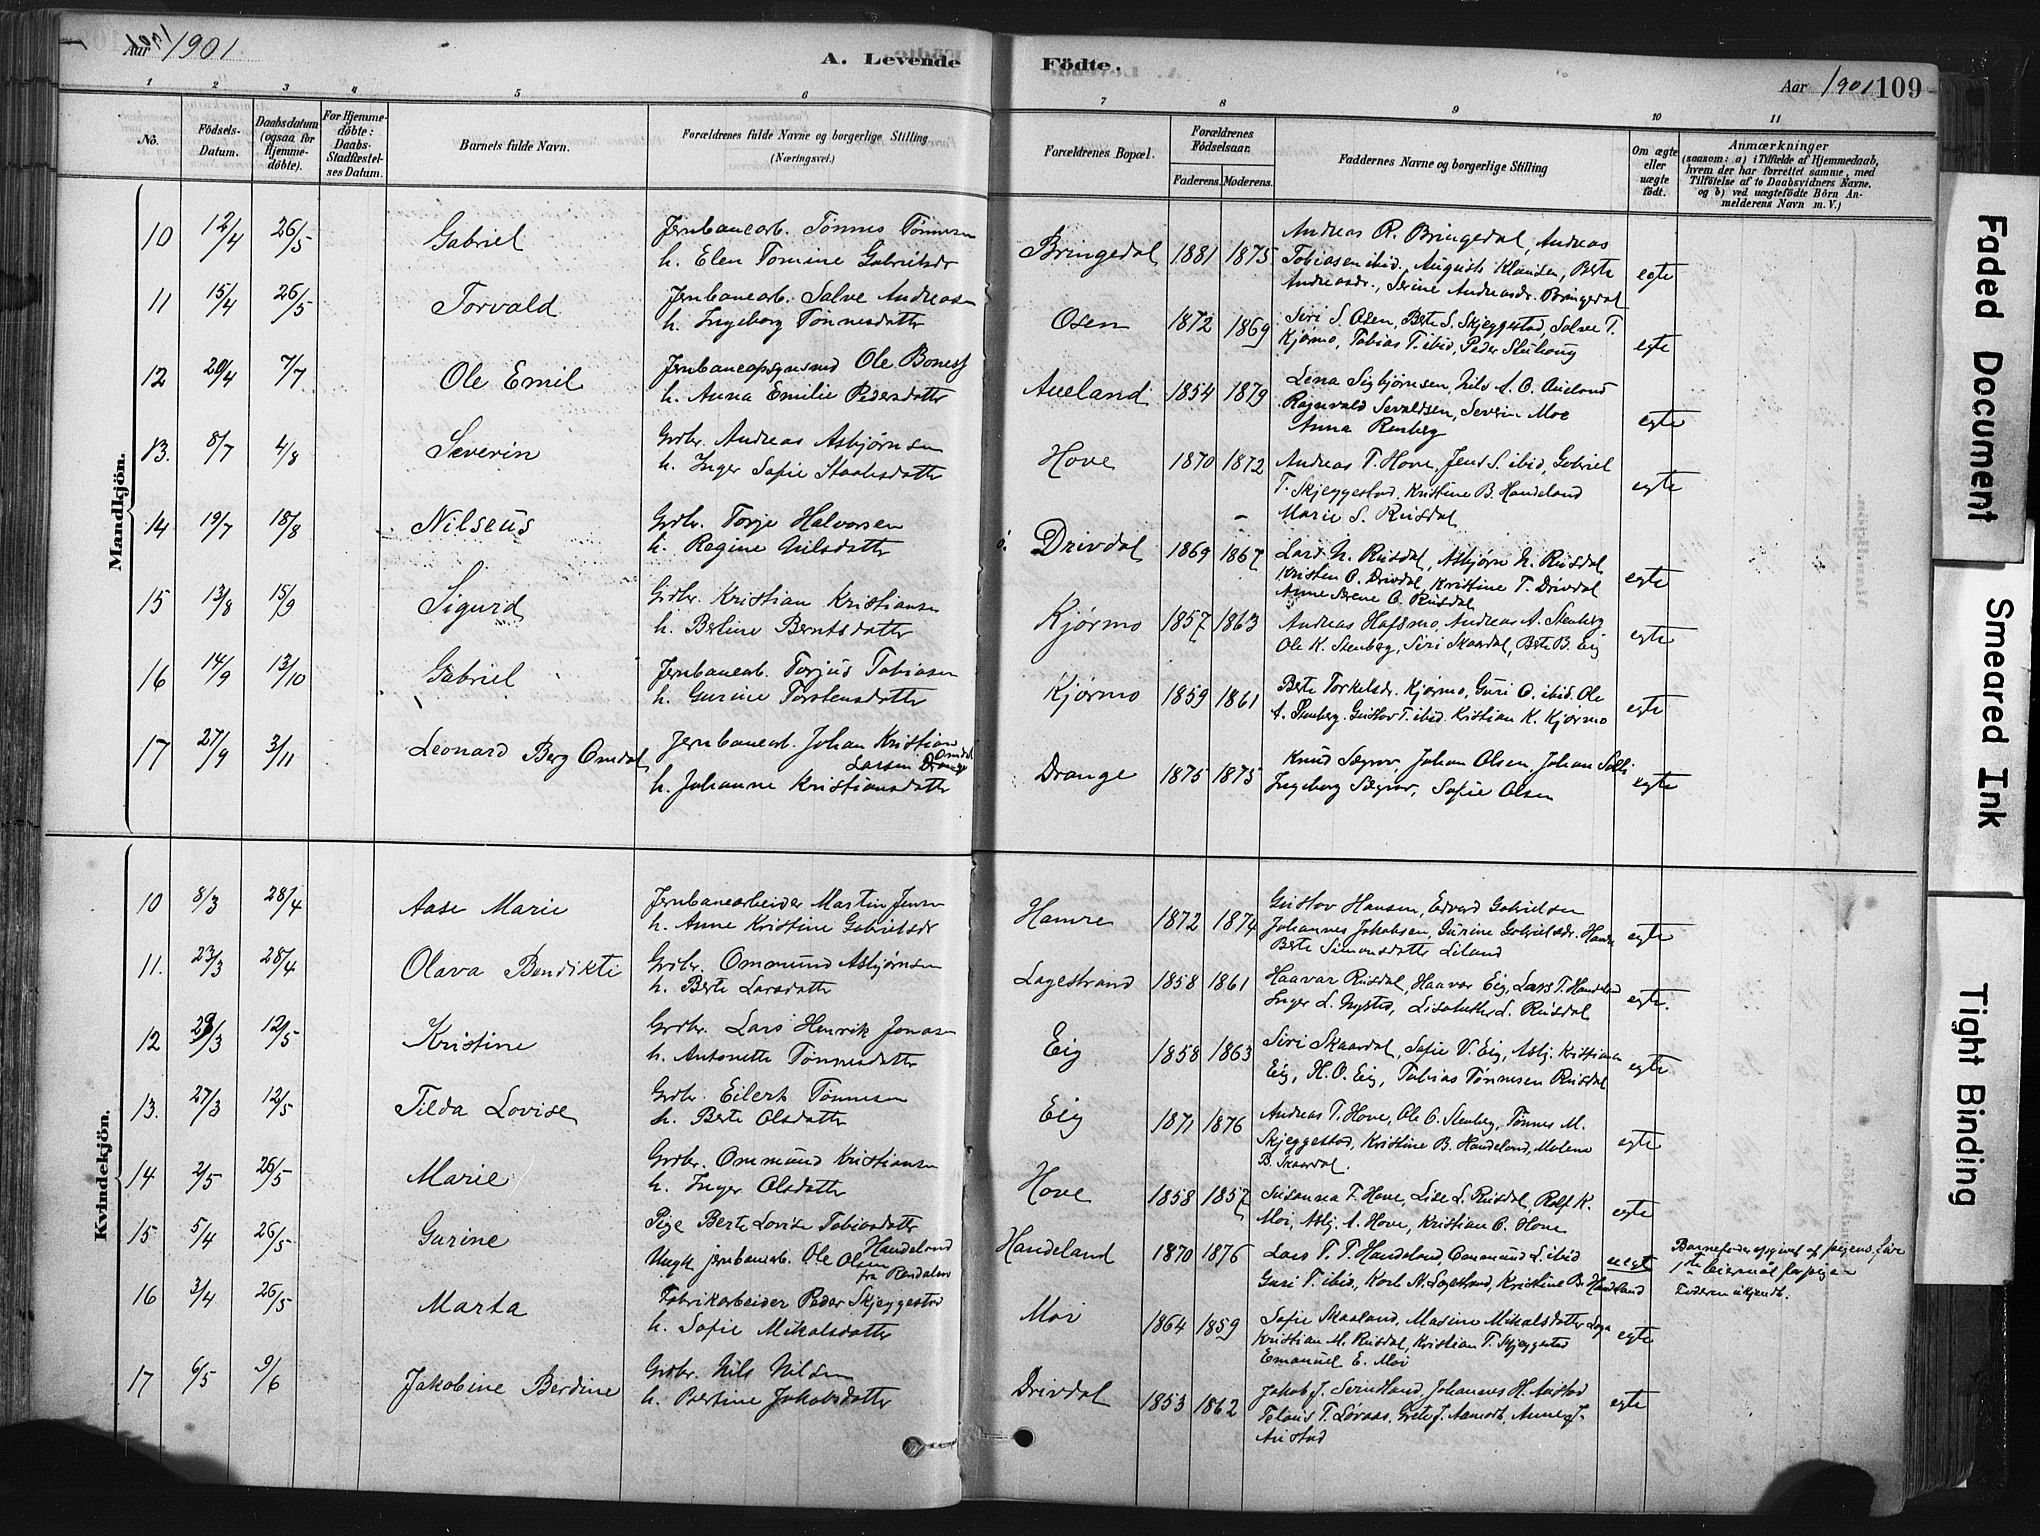 Aar 1901
A. Levende Födte.
Aar 1901 109
1 2 3 4 5 6 7 8 9 10 11
No.
Födsels-Datum.
Daabsdatum (ogsaa for Hjemmedöbte).
For Hjemmedöbte: Daabs-Stadfæstelses Datum.
Barnets fulde Navn.
Forældrenes fulde Navne og borgerlige Stilling (Næringsvei.)
Forældrenes Bopæl.
Forældrenes Födselsaar.
Faderens. Moderens.
Faddernes Navne og borgerlige Stilling
Om ægte eller uægte födt.
Anmærkninger
(saasom: a) i Tilfælde af Hjemmedaab,
hvem der har forrettet samme, med
Tilföielse af to Daabsvidners Navne,
og b) ved uægtefödte Börn An-
melderens Navn m. V.)
Mandkjön.
10 12/4 26/5 Gabriel
Jernbanearb. Tønnes Tønnesen
h. Elen Tomine Gabrielsdr
Bringedal 1881 1875
Andreas R. Bringedal, Andreas
Tobiasen ibid., August Klausen, Berte
Andreasdr., Serine Andreasdr. Bringedal
egte
11 15/4 26/5 Torvald
Jernbanearb. Salve Andreasen
h. Ingeborg Tønnesdatter
Osen 1872 1869
Siri S. Osen, Berte S. Skjeggestad, Salve T.
Kjørmo, Tobias T. ibid, Peder
egte
12 20/4 7/7 Ole Emil
Ole
h. Anna Emilie Pedersdatter
Aueland 1854 1879
Lena Sigbjørnsen, Nils A. O. Aueland
Ragnvald Sevaldsen, Severin Moe
Anna Renberg
egte
13. 8/7 4/8 Severin
Grdbr. Andreas Asbjørnsen
h. Inger Sofie
Hove 1870 1872
Andreas T. Hove, Jens S. ibid, Gabriel
T. Skjeggestad, Kristine B. Handeland
Marie S. Rusdal
egte
14 19/7 18/8 Nilseus
Grdbr. Torje Halvorsen
h. Regine Nilsdatter
Drivdal 1869 1867
Lars N. Rusdal, Asbjørn N. Rusdal
Kristen O. Drivdal, Kristine T. Drivdal
Anne Serene O. Rusdal
egte
15 13/8 15/9 Sigurd
Grdbr. Kristian Kristiansen
h. Bertine Berntsdatter
Kjørmo 1857 1863
Andreas Hafsmo, Andreas A. Stenberg
Ole K. Stenberg, Siri Skaardal, Berte B. Eig
egte
16 14/9 13/10 Gabriel
Jernbanearb. Torjus Tobiasen
h. Gurine Torstensdatter
Kjørmo 1859 1861
Berte Torkelsdr. Kjørmo, Guri O. ibid. Ole
A. Stenberg. Gustov T. ibid. Kristian K. Kjørmo
egte
17 27/9 3/11 Leonard Berg Omdal
Jernbanearb. Johan Kristian
Larsen Omdal
h. Johanne Kristiansdatter
Drange 1875 1875
Knud Segrov, Johan Olsen, Johan
Ingeborg Segrov, Sofie Olsen
egte
Kvindekjön.
10 8/3 28/4 Aase Marie
Jernbanearbeider Martin Jensen
h. Anne Kristine Gabrielsdr
Hamre 1872 1874
Gustov Hansen, Edvard Gabrielsen
Johannes Jakobsen, Gurine Gabrielsdr. Hamre
Berte Simonsdatter Liland
egte
11. 23/3 28/4 Olava Bendikte
Grdbr. Ommund Asbjørnsen
h. Berte Larsdatter
Lagestrand 1858 1861
Haavar Rusdal, Haavar Eig, Lars T. Handeland
Inger L. Nysted, Lisabeth L. Rusdal
egte.
12 29/3 12/5 Kristine
Grdbr. Lars Henrik Jonasen
h. Antonette Tønnesdatter
Eig 1858 1863
Siri Skaardal, Sofie V. Eig, Asbj. Kristiansen
Eig, H. O. Eig, Tobias Tønnesen Rusdal
egte
13. 27/3 12/5 Tilda Lovise
Grdbr. Eilert Tønnesen
h. Berte Olsdatter
Eig 1871 1876
Andreas T. Hove, Ole O. Stenberg, Tønnes M.
Skjeggestad, Kristine B. Handeland, Malene
B. Skaardal.
egte
14 2/5 26/5 Marie
Grdbr. Ommund Kristiansen
h. Inger Olsdatter
Hove 1858 1857
Susanna T. Hove, Lise L. Rusdal, Rolf K.
Moi, Asbj. A. Hove, Kristian O. Hove
egte
15 5/4 26/5 Gurine
Pige Berte Lovise Tobiasdatter
Handeland
Ungk. jernbanearb. Ole Olsen
fra Rendalen
Handeland 1870 1876
Lars T. T. Handeland, Ommund L. ibid
Guri T. ibid, Karl N. Lagestrand, Kristine B. Handeland
uegte
Barnefader opgivet af
1ste leiermaal for pigen
Faderen ukjendt.
16 3/4 26/5 Marta
Fabrikarbeider Peder Skjeggestad
h. Sofie Mikalsdatter
Moi 1864 1859
Sofie Skaaland, Masine Mikalsdatter Loga
Kristian M. Rusdal, Kristian T. Skjeggestad
Emanuel E. Moi
egte
17 6/5 9/6 Jakobine Berdine
Grdbr. Nils Nilsen
h. Bertine Jakobsdatter
Drivdal 1853 1862
Jakob J. Svindland, Johannes H. Austad
Tolaus T. Løraas, Grete J. Aamodt, Anne J.
Austad
egte
Faded Document
Smeared Ink
Tight Binding